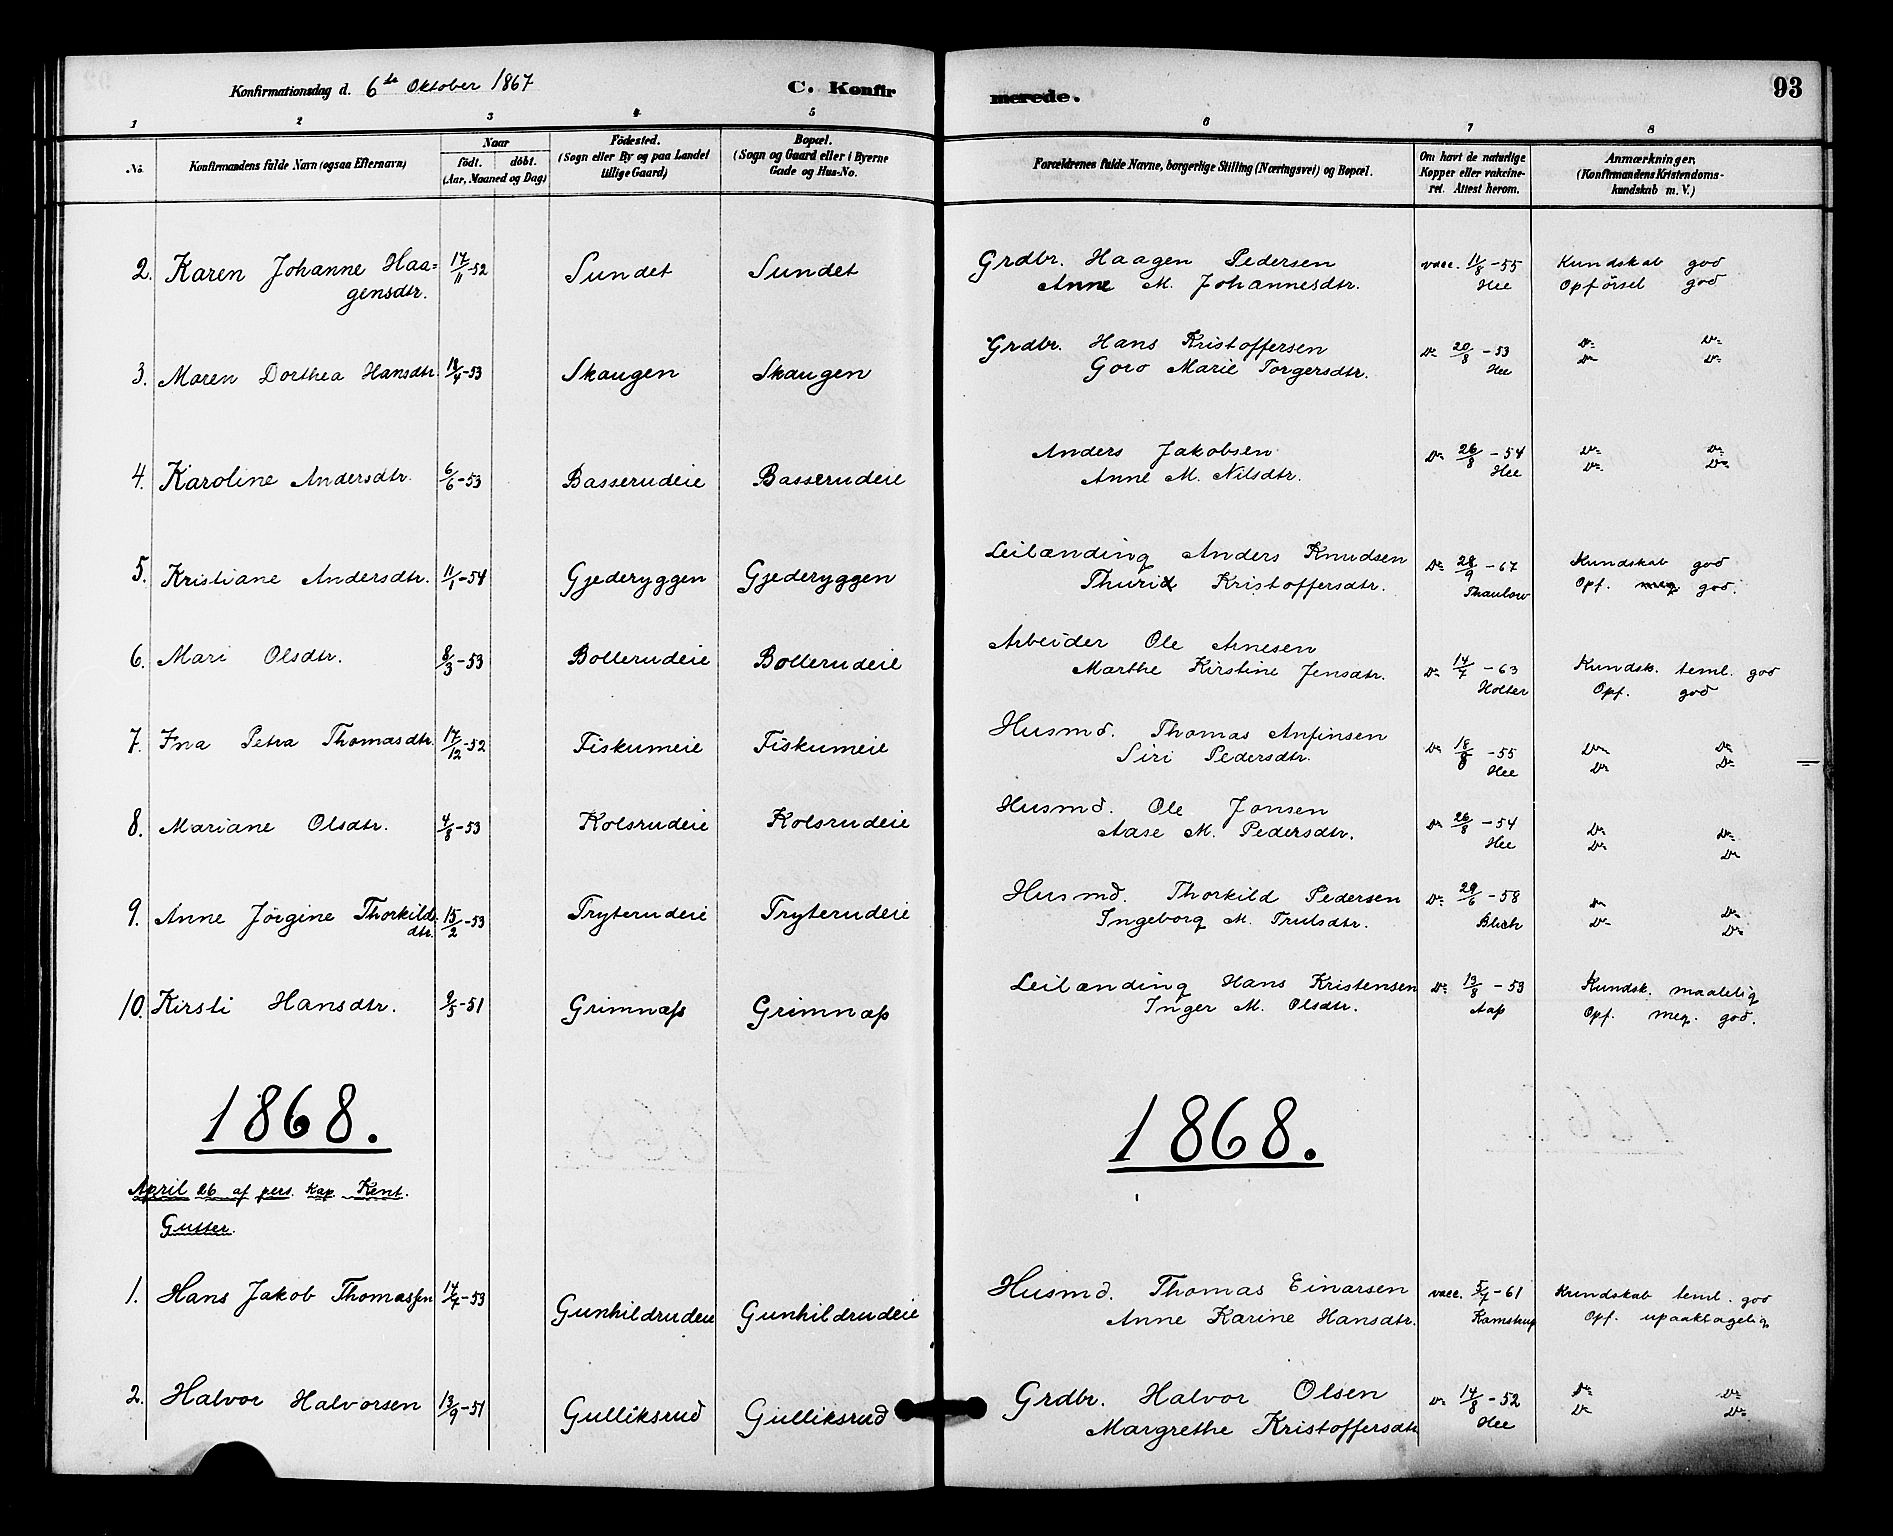 Konfirmationsdag d. 6te Oktober 1867 C. Konfir merede. 93
1 2 3 4 5 6 7 8
No. Konfirmandens fulde Navn (ogsaa Efternavn) Naar födt. döbt. (Aar, Maaned og Dag) Födested. (Sogn eller By og paa Landet tillige Gaard) Bopæl. (Sogn og Gaard eller i Byerne Gade og Hus-No. Forældrenes fulde Navne, borgerlige Stilling (Næringsvei) og Bopæl. Om havt de naturlige Kopper eller vakcineret. Attest herom. Anmærkninger, (Konfirmandens Kristendomskundskab m. V.)
2. Karen Johanne Haa= 17/11-52 Sundet Sundet Grdbr. Haagen Pedersen vacc. 11/8-55 Kundskab god
gensdtr. Anne M. Johannesdtr. Hee Opførsel god
3. Maren Dorthea Hansdtr. 18/4-53 Skaugen Skaugen Grdbr. Hans Kristoffersen Do 20/8-53 Do Do
Goro Marie Torgersdtr. Hee Do Do
4. Karoline Andersdtr. 6/6-53 Basserudeie Basserudeie Anders Jakobsen Do 26/8-54 Do Do
Anne M. Nilsdtr. Hee Do Do
5. Kristiane Andersdtr. 11/1-54 Gjederyggen Gjederyggen Leilænding Anders Knudsen Do 28/9-67 Kundskab god
Thurid Kristoffersdtr. Thaulow Opf. meg god.
6. Mari Olsdtr. 8/3-53 Bollerudeie Bollerudeie Arbeider Ole Arnesen Do 14/7-63 Kundsk. teml. god
Marthe Kirstine Jensdtr. Holter Opf. god
7. Ina Petra Thomasdtr. 17/12-52 Fiskumeie Fiskumeie Husmd. Thomas Anfinsen Do 18/8-55 Do Do
Siri Pedersdtr. Hee Do Do
8. Mariane Olsdtr. 4/8-53 Kolsrudeie Kolsrudeie Husmd. Ole Jonsen Do 26/8-54 Do Do
Aase M. Pedersdtr. Hee Do Do
9. Anne Jørgine Thorkilds 15/2-53 Tryterudeie Tryterudeie Husmd. Thorkild Pedersen Do 29/6-58 Do Do
dtr. Ingeborg M. Trulsdtr. Blich Do Do
10. Kirsti Hansdtr. 9/5-51 Grimnæss Grimnæss Leilænding Hans Kristensen Do 13/8-53 Kundsk. maalelig
Inger M. Olsdtr. Aass Opf. meg. god.
1868. 1868.
April 26 af pers. Kap. Kent.
Gutter.
1. Hans Jakob Thomassen 14/4-53 Gunhildrudeie Gunhildrudeie Husmd. Thomas Einarsen vacc. 5/4-61 Kundskab teml. god
Anne Karine Hansdtr. Kamstrup Opf. upaaklagelig
2. Halvor Halvorsen 13/9-51 Gulliksrud Gulliksrud Grdbr. Halvor Olsen Do 14/8-52 Do Do
Margrethe Kristoffersdtr Hee Do Do